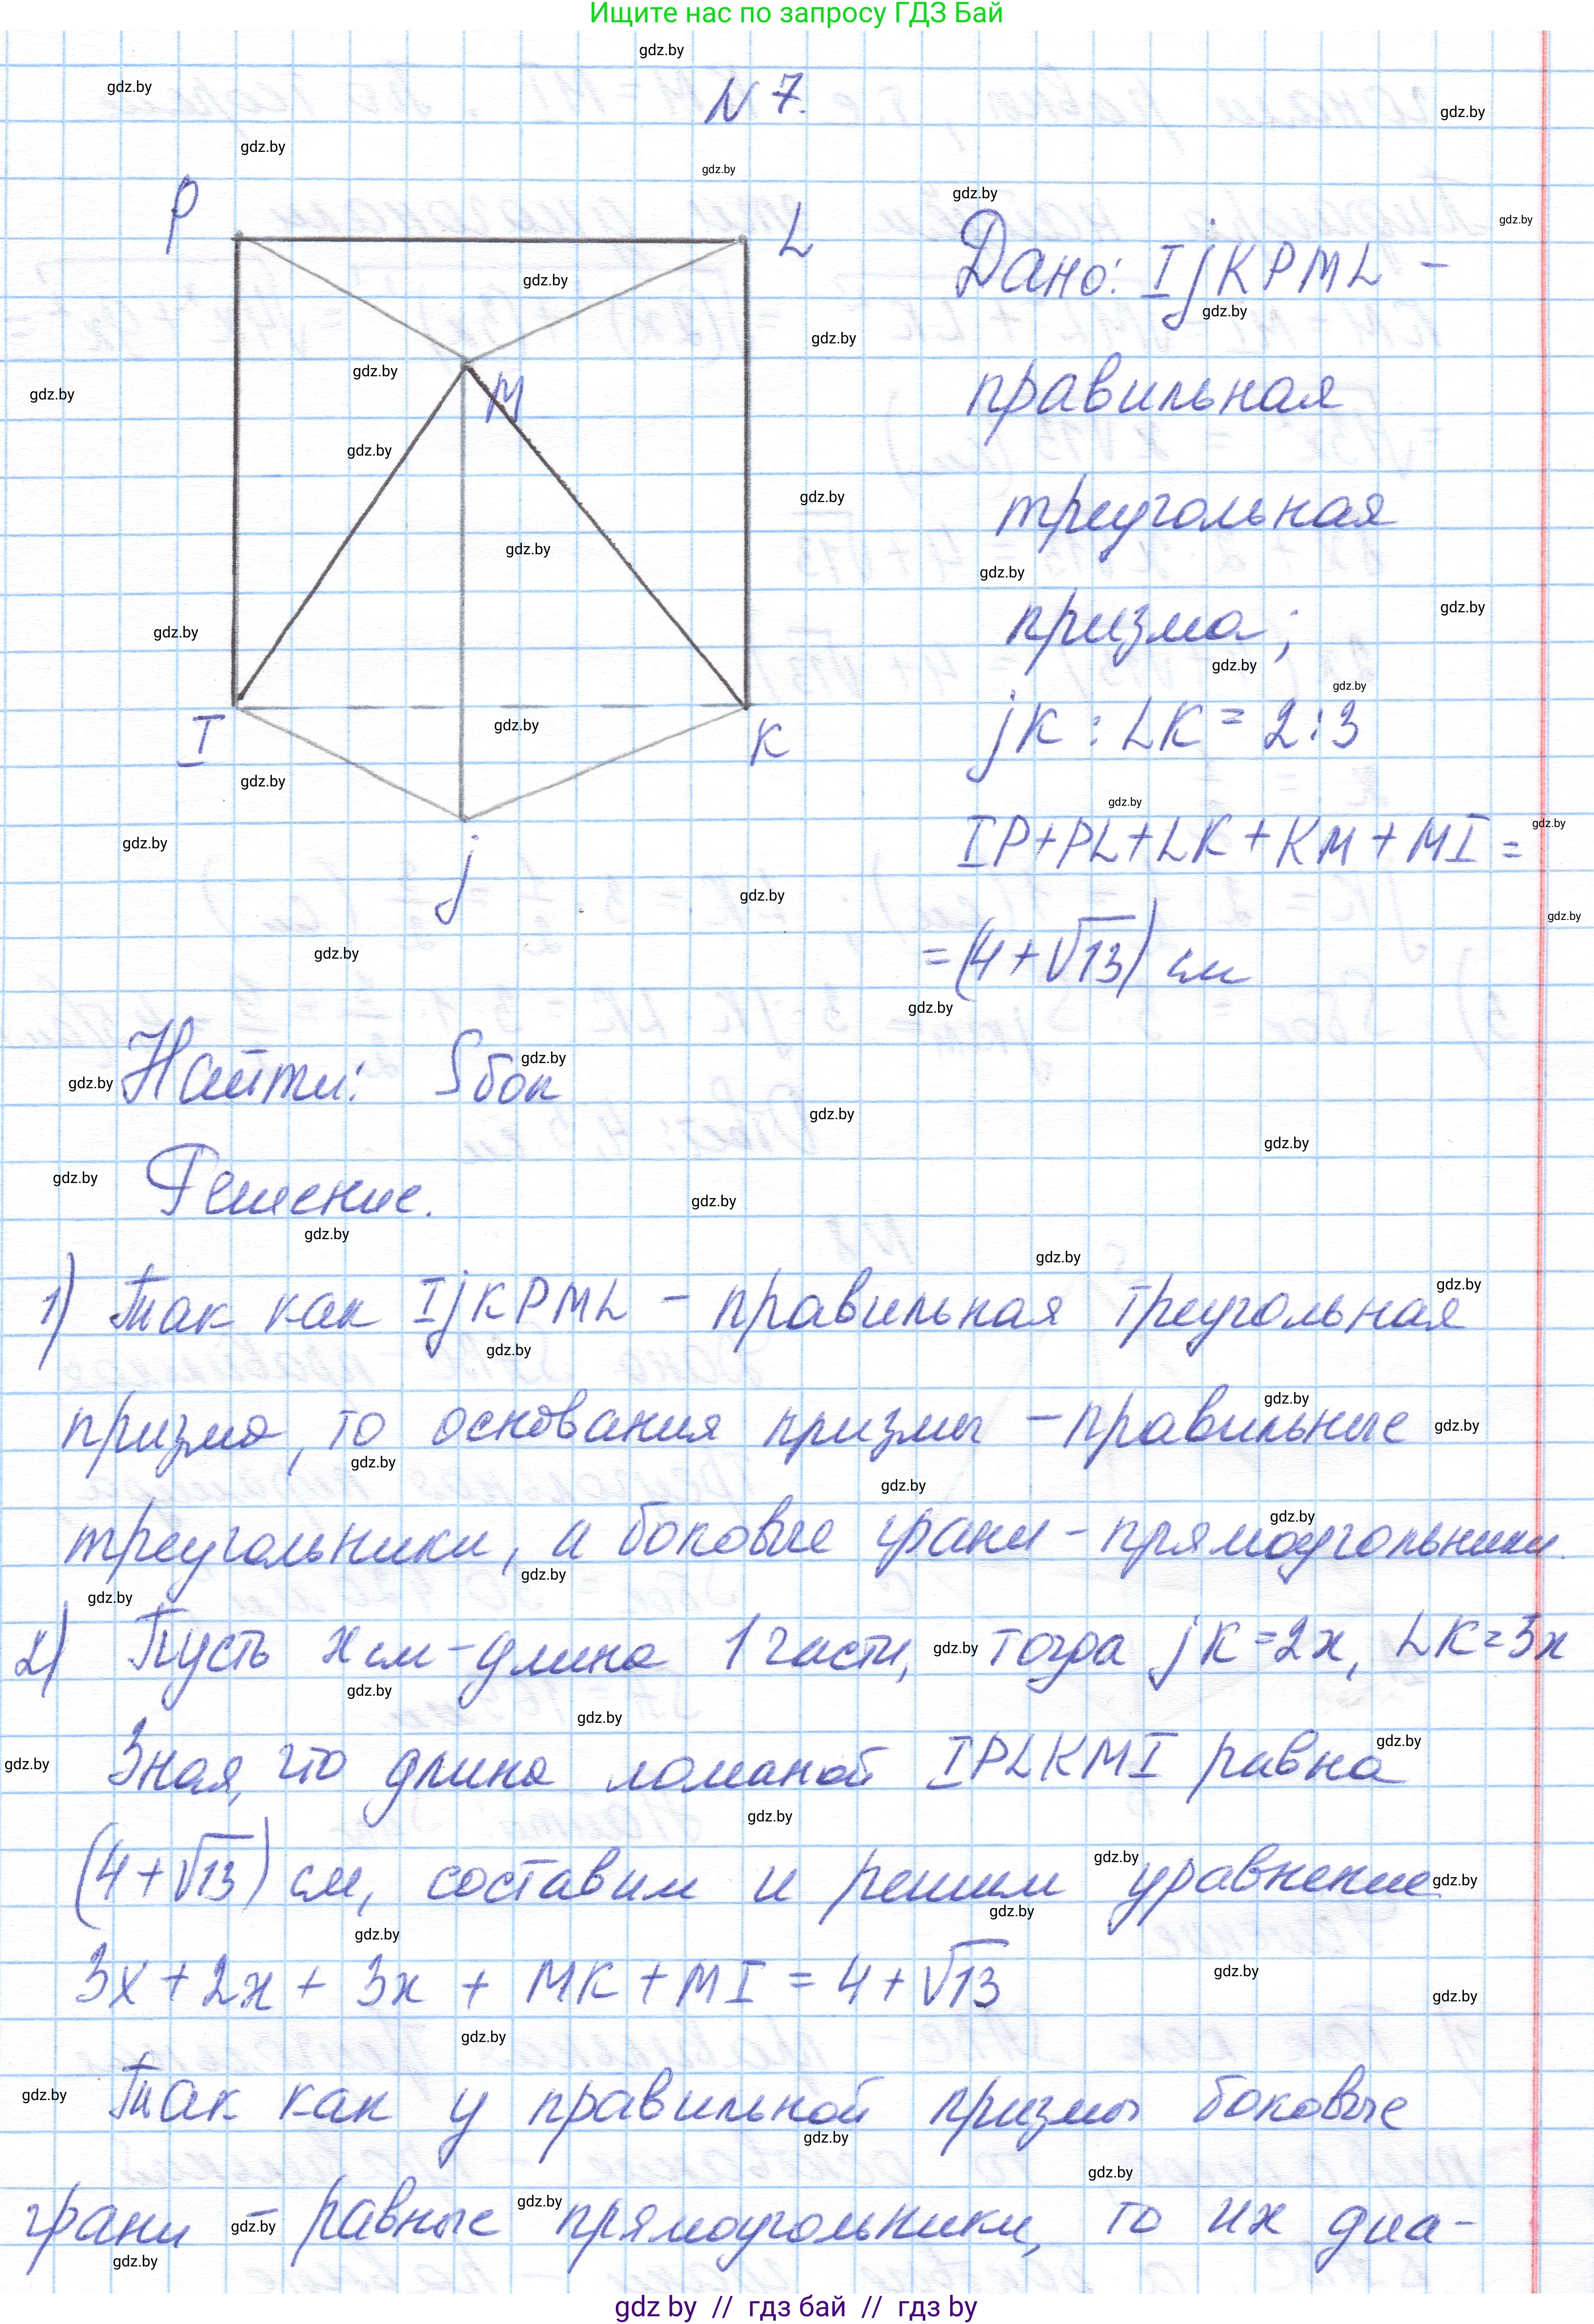 Ищите нас по запросу ГДЗ Бай
N 7.
P
L
M
I
K
j
Дано: IjKPML –
правильная
треугольная
призма;
jK : LK = 2:3
IP+PL+LK+KM+MI =
= (4+√13) см
Найти: Sбок
Решение.
1) Так как IjKPML – правильная треугольная
призма, то основания призмы – правильные
треугольники, а боковые грани – прямоугольники.
2) Пусть x см – длина 1 части, тогда jK=2x, LK=3x
Зная, что длина ломаной IPLKMI равна
(4+√13) см, составим и решим уравнение
3x + 2x + 3x + MK + MI = 4 + √13
Так как у правильной призмы боковые
грани – равные прямоугольники, то их диа-
gdz by // гдз бай // гдз by